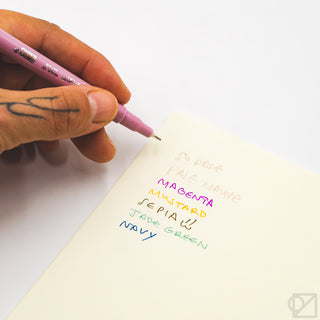 SO PALE
PALE MAUVE
MAGENTA
MUSTARD
SEPIA
JADE GREEN
NAVY